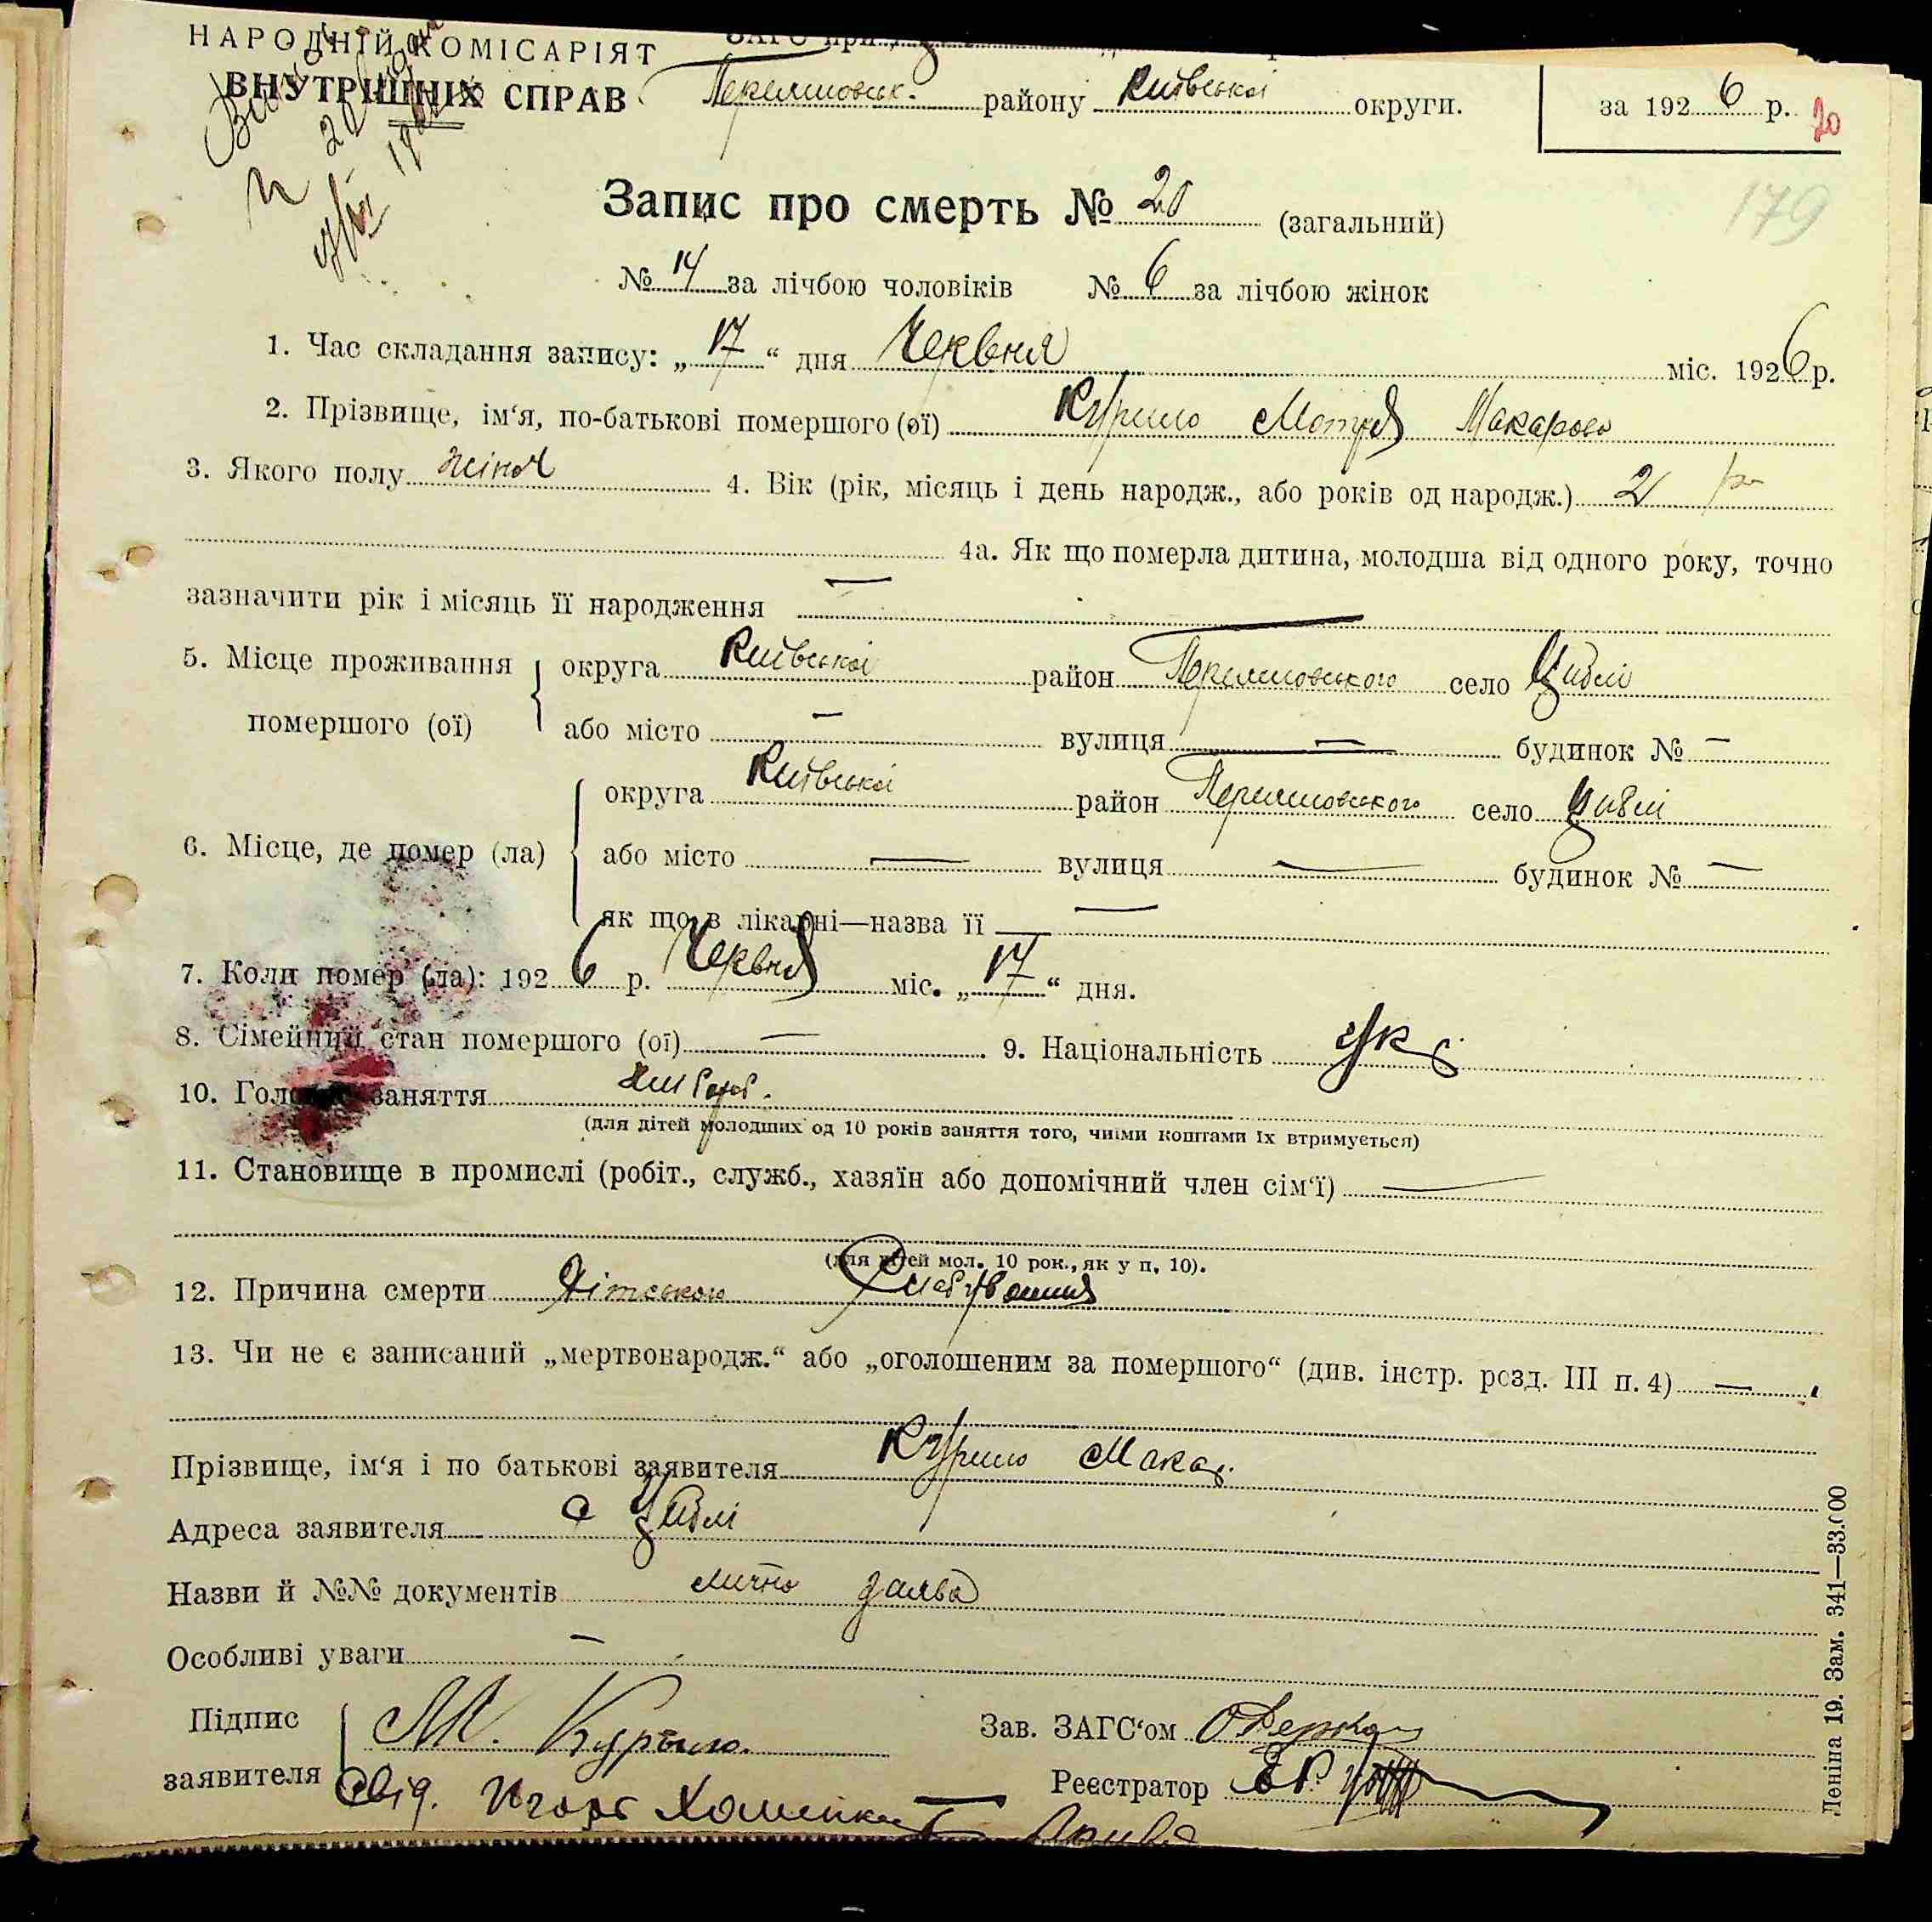 НАРОДНІЙ КОМІСАРІЯТ
ВНУТРІШНІХ СПРАВ
ЗАГС при
району Київської округи.
за 1926 р. 20
179
Запис про смерть № 20 (загальний)
№ 14 за лічбою чоловіків № 6 за лічбою жінок
1. Час складання запису: „17“ дня Червня міс. 1926 р.
2. Прізвище, ім‘я, по-батькові помершого (ої) Курило Мотря Макарово
3. Якого полу жіноч 4. Вік (рік, місяць і день народж., або років од народж.) 2 р
4а. Як що померла дитина, молодша від одного року, точно
зазначити рік і місяць її народження —
5. Місце проживання помершого (ої) округа Київської район село Циблі
або місто — вулиця — будинок № —
6. Місце, де помер (ла) округа Київської район село Циблі
або місто — вулиця — будинок № —
як що в лікарні—назва її —
7. Коли помер (ла): 1926 р. Червня міс. „17“ дня.
8. Сімейний стан помершого (ої) — 9. Національність укр.
10. Головне заняття хлібороб.
(для дітей молодших од 10 років заняття того, чиїми коштами їх втримується)
11. Становище в промислі (робіт., служб., хазяїн або допомічний член сім‘ї) —
(для дітей мол. 10 рок., як у п. 10).
12. Причина смерти Дітського
13. Чи не є записаний „мертвонародж.“ або „оголошеним за помершого“ (див. інстр. розд. III п. 4) —
Прізвище, ім‘я і по батькові заявителя Курило Макар.
Адреса заявителя с Циблі
Назви й №№ документів лично заява
Особливі уваги —
Підпис заявителя М. Курыло. Зав. ЗАГС‘ом
Реєстратор
Свід.
Леніна 19. Зам. 341—33.000